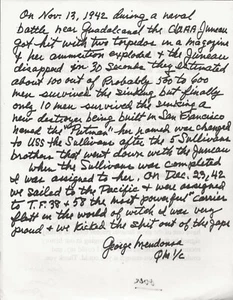 On Nov 13, 1942 during a naval
battle near Guadalcanal the CLAA Juneau
got hit with two torpedos in a magazine
& her ammunition exploded & the Juneau
disapped in 30 seconds they estimated
about 100 out of Probably 550 to 600
men survived the sinking but finally
only 10 men survived the sinking a
new destroyer being built in San Francisco
named the "Putman" her named was changed
to USS the Sullivans after the 5 Sullivans
brothers that went down with the Juneau
when the Sullivans was completed
I was assigned to her. On Dec. 23, 42
we sailed to the Pacific & were assigned
to T.F. 38 & 58 the most powerful "carrier
fleet in the world of witch I was very
proud & we kicked the shit out of the Japs
George Mendonsa
QM 1/c